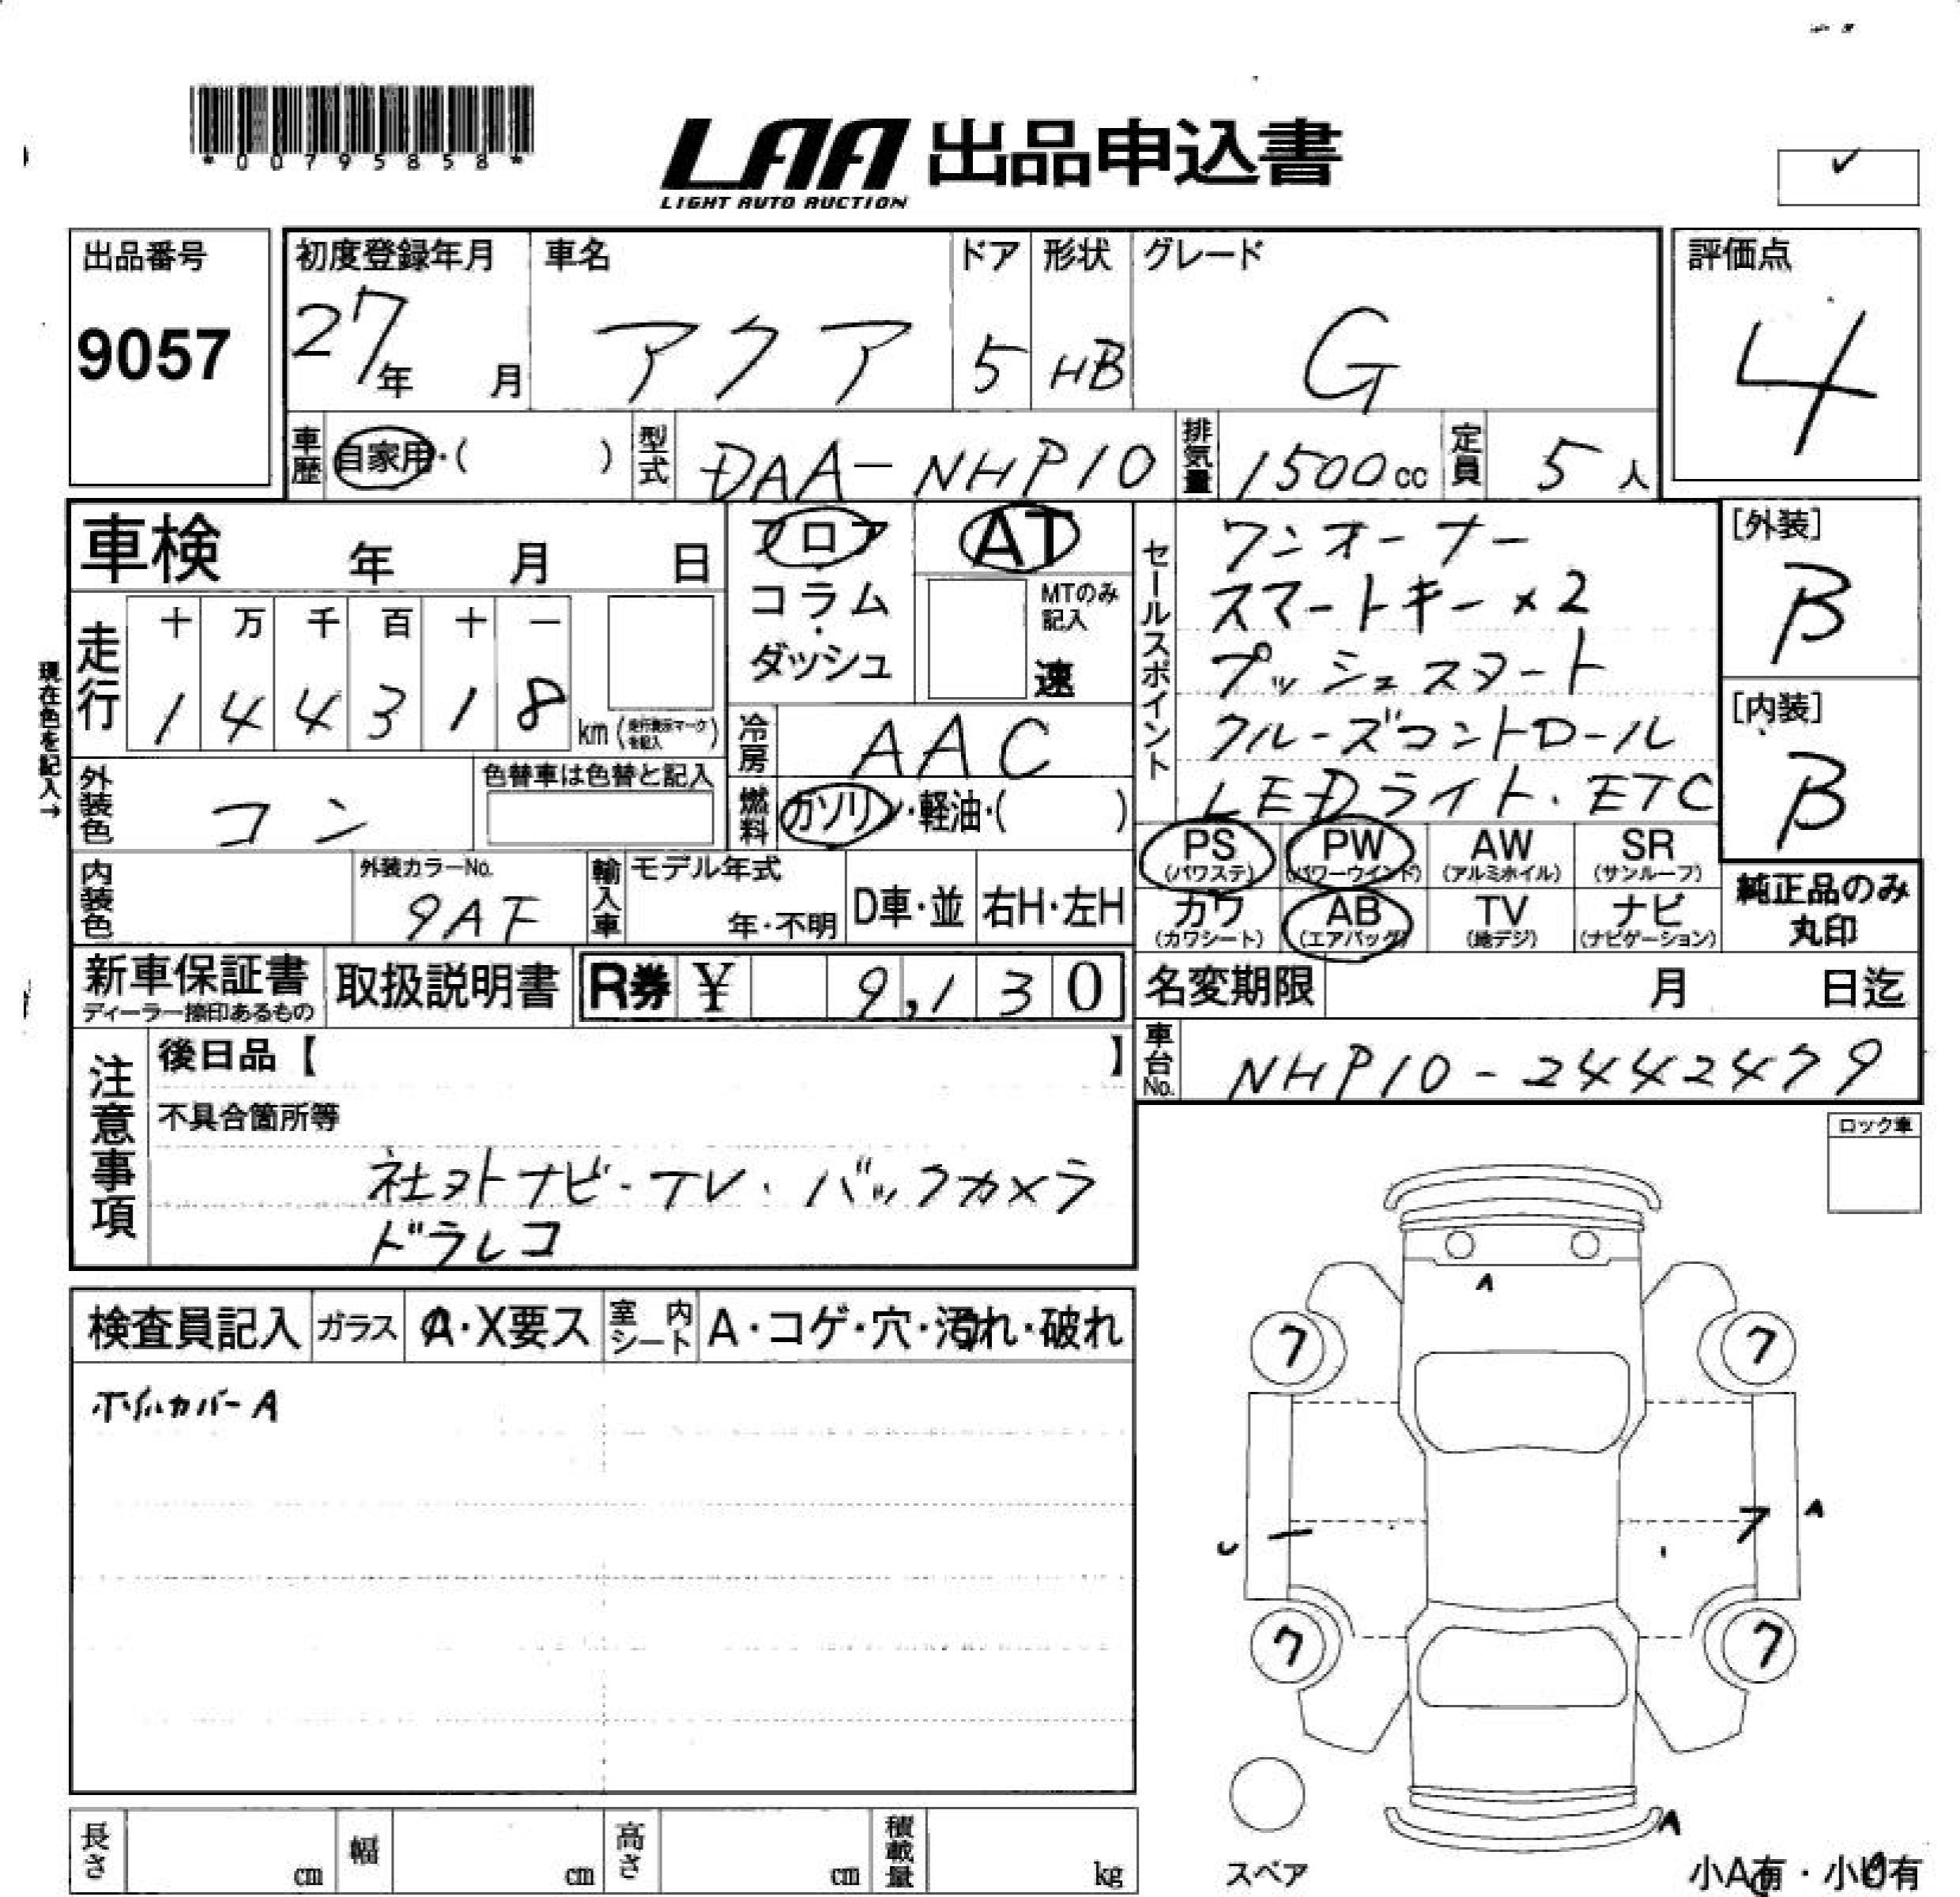 *00795858*
LAA 出品申込書
LIGHT AUTO AUCTION
✓
出品番号
9057
初度登録年月
27年 月
車名
アクア
ドア
5
形状
HB
グレード
G
評価点
4
車歴 自家用・( )
型式 DAA-NHP10
排気量 1500cc
定員 5人
車検 年 月 日
フロア
コラム・
ダッシュ
AT
MTのみ
記入
速
セールスポイント
ワンオーナー
スマートキー×2
プッシュスタート
クルーズコントロール
LEDライト・ETC
[外装]
B
[内装]
B
現在色を記入→
走行
十 万 千 百 十 一
1 4 4 3 1 8 km
冷房 AAC
外装色 コン
色替車は色替と記入
燃料 ガソリン・軽油・( )
内装色
外装カラーNo.
9AF
輸入車
モデル年式
年・不明
D車・並
右H・左H
PS (パワステ)
PW (パワーウインド)
AW (アルミホイル)
SR (サンルーフ)
カワ (カワシート)
AB (エアバッグ)
TV (地デジ)
ナビ (ナビゲーション)
純正品のみ
丸印
新車保証書
ディーラー捺印あるもの
取扱説明書
R券 ¥ 9,130
名変期限 月 日迄
車台No. NHP10-2442479
注意事項
後日品【 】
不具合箇所等
社外ナビ・TV・バックカメラ
ドラレコ
ロック車
検査員記入
ガラス A・X要ス
室内シート A・コゲ・穴・汚れ・破れ
ホイルカバーA
A
7 7
A
7 7
A
スペア
小A有・小U有
長さ cm
幅 cm
高さ cm
積載量 kg